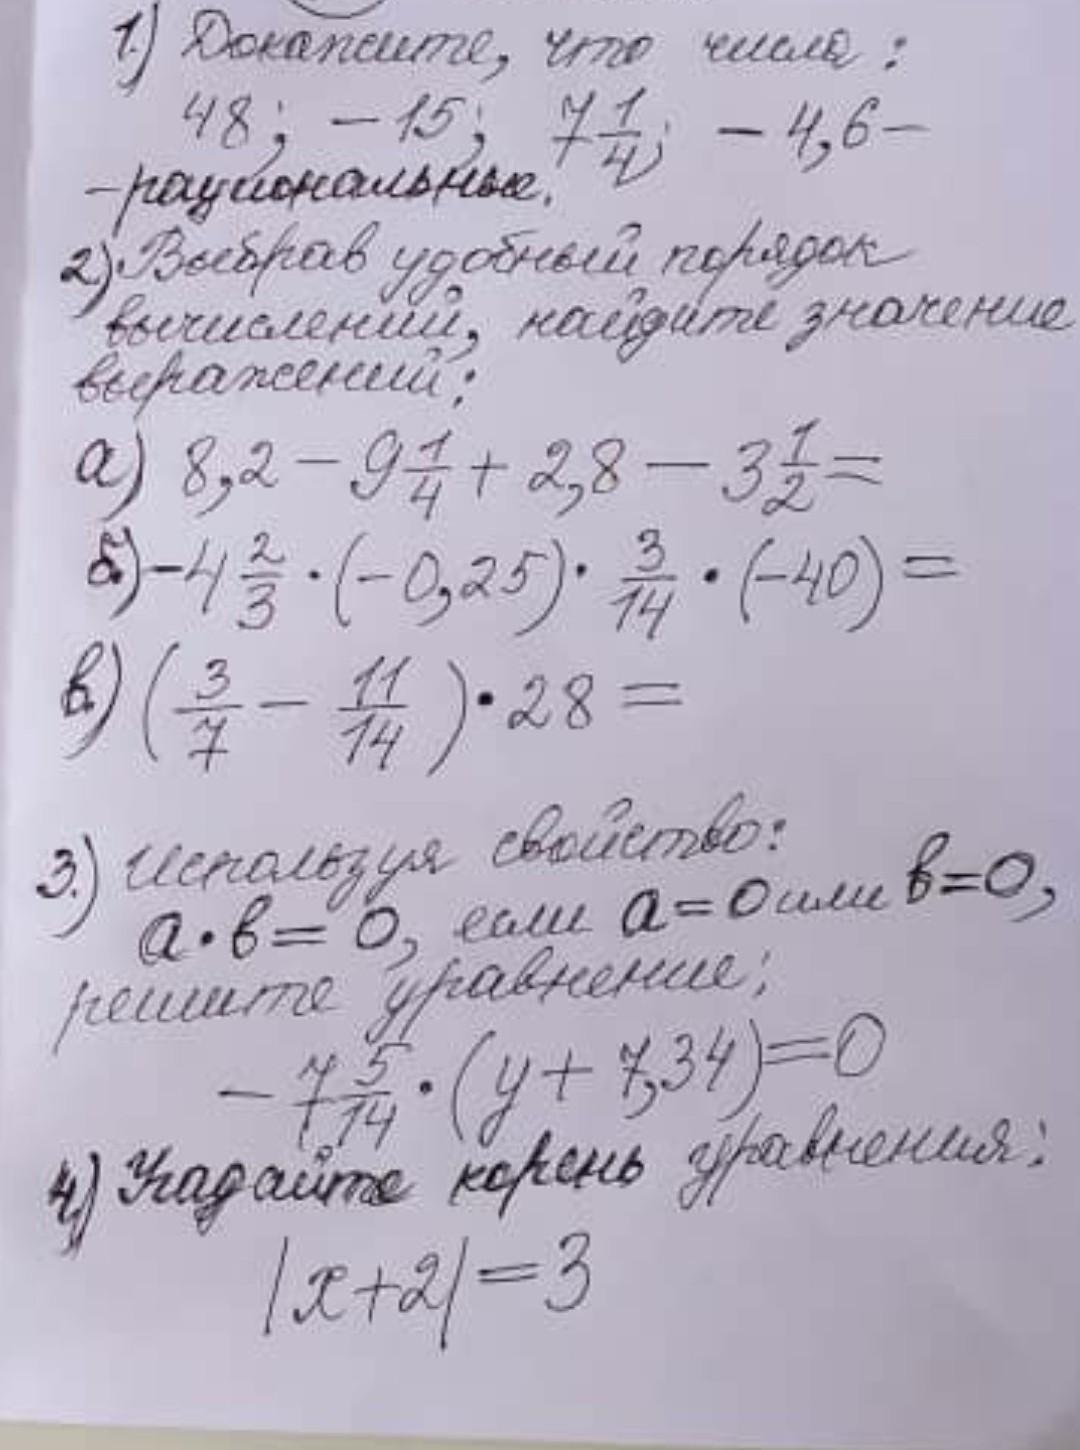 1.) Докажите, что числа:
48; -15; 7 1/4; -4,6-
-рациональные.
2) Выбрав удобный порядок
вычислений, найдите значение
выражений:
а) 8,2 - 9 1/4 + 2,8 - 3 1/2 =
б.) -4 2/3 · (-0,25) · 3/14 · (-40) =
в.) (3/7 - 11/14) · 28 =
3.) Используя свойство:
а · в = 0, если а = 0 или в = 0,
решите уравнение:
-7 5/14 · (y + 7,34) = 0
4) Угадайте корень уравнения:
|x+2| = 3